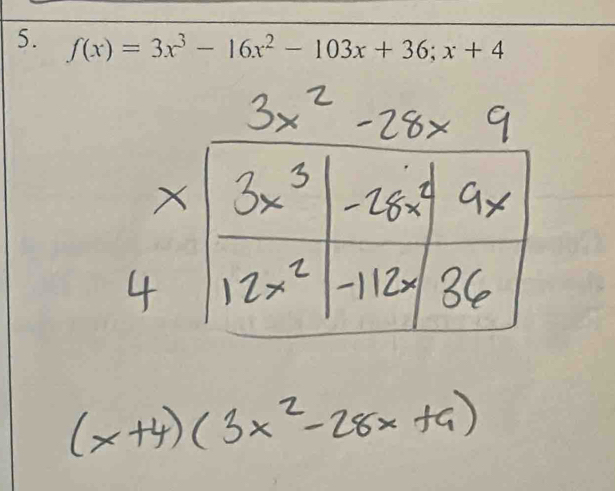 5. f(x) = 3x³ − 16x² − 103x + 36; x + 4
3x² -28x 9
x 3x³ -28x² 9x
4 12x² -112x 36
(x+4)(3x²-28x+9)